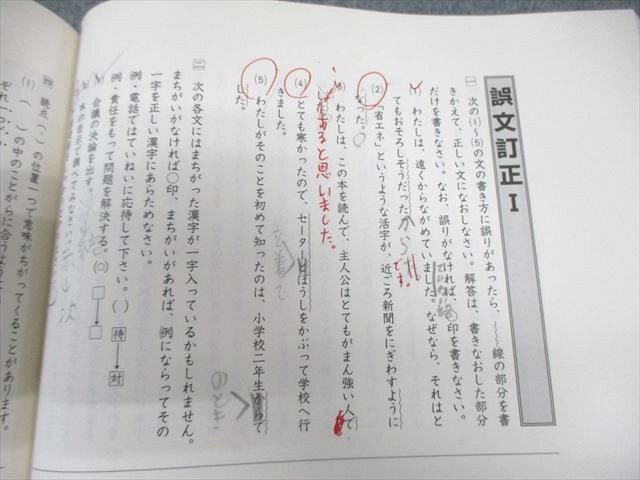 誤文訂正Ⅰ
一 次の⑴~⑸の文の書き方に誤りがあったら、﹏﹏線の部分を書
きかえて、正しい文になおしなさい。解答は、書きなおした部分
だけを書きなさい。なお、誤りがなければ○印を書きなさい。
⑴ わたしは、遠くからながめていました。なぜなら、それはと
てもおそろしそうだった
からです。
⑵ 「省エネ」というような活字が、近ごろ新聞をにぎわすように
なった。
⑶ わたしは、この本を読んで、主人公はとてもがまん強い人で、
した。
あると思いました。
⑷ とても寒かったので、セーターとぼうしをかぶって学校へ行
きました。
を着て
⑸ わたしがそのことを初めて知ったのは、小学校二年生からで
した。
のとき
二 次の各文にはまちがった漢字が一字入っているかもしれません。
まちがいがなければ○印、まちがいがあれば、例にならってその
一字を正しい漢字にあらためなさい。
例・電話ではていねいに応待して下さい。( ) 待→対
例・責任をもって問題を解決する。(○) □→□
会議の決論を出す。
四 読点(、)の位置一つで意味がちがってくることがあります。
⑴ ( )の中のことがらに合うように